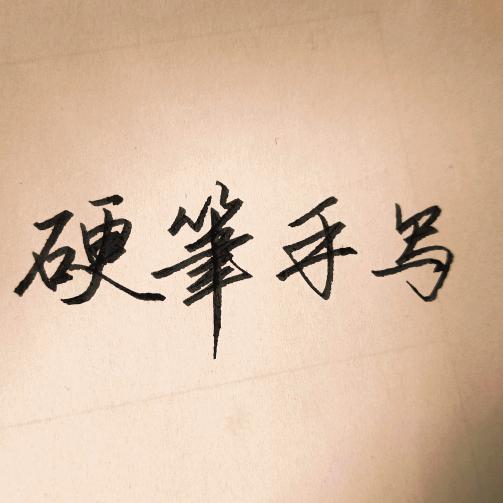 硬筆手写